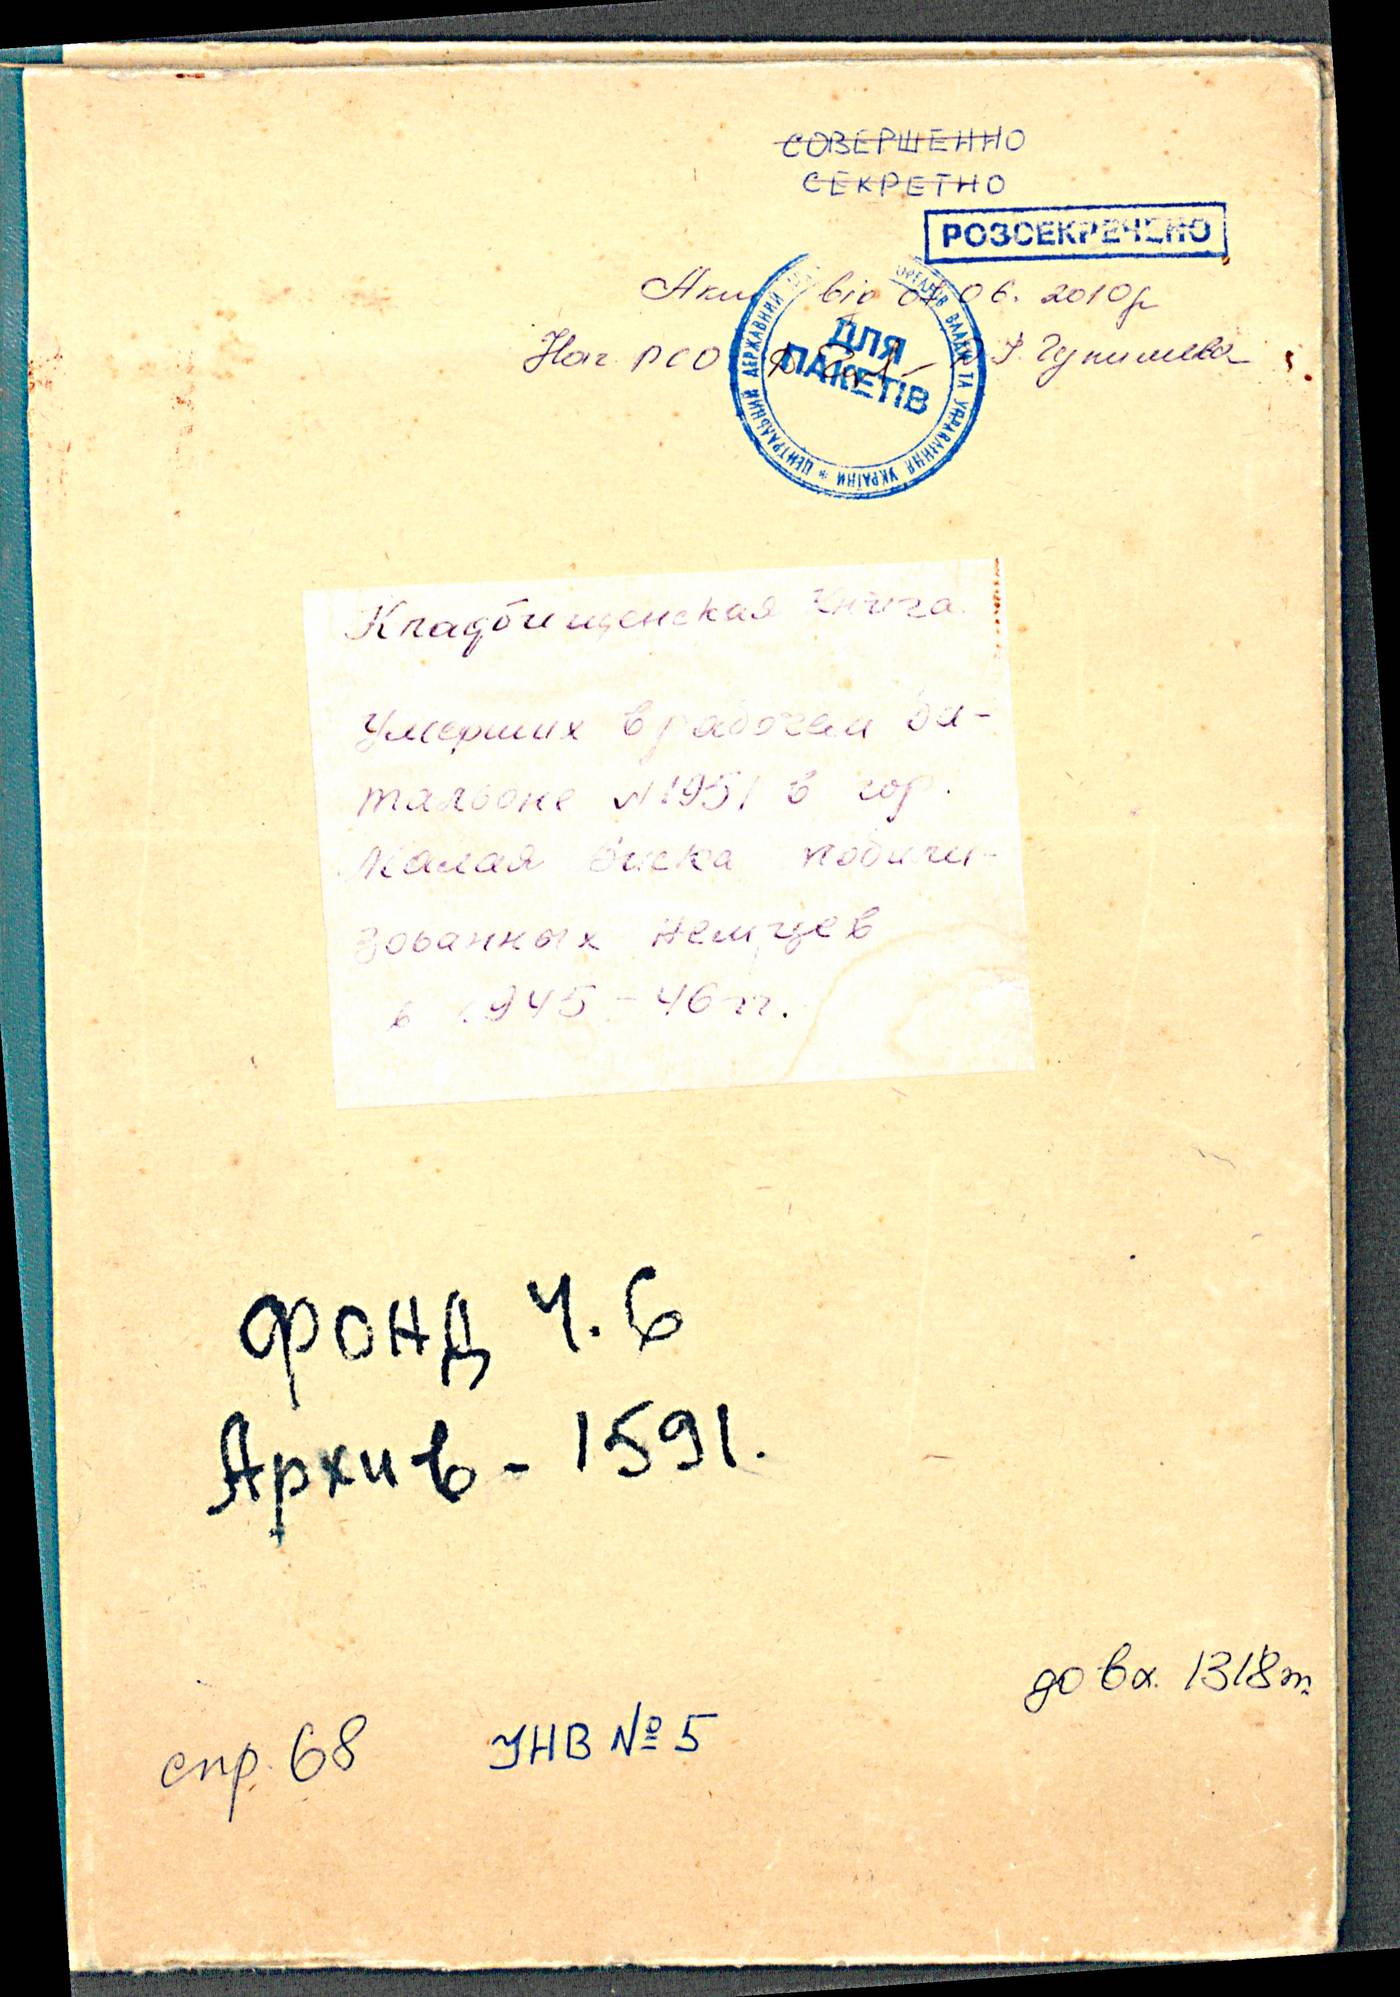 СОВЕРШЕННО
СЕКРЕТНО
РОЗСЕКРЕЧЕНО
Акт від 06. 2010р
Нач. РСО
ЦЕНТРАЛЬНИЙ ДЕРЖАВНИЙ ОРГАНІВ ВЛАДИ ТА УПРАВЛІННЯ УКРАЇНИ *
ДЛЯ
ПАКЕТІВ
Кладбищенская Книга
Умерших в рабочем ба-
тальоне №1951 в гор.
Малая Виска мобили-
зованных немцев
в 1945-46 гг.
ФОНД Ч. 6
Архив - 1591.
до вх. 1318т
спр. 68 УНВ № 5